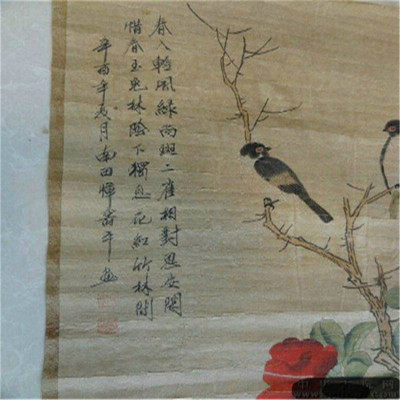 春入輕風綠尚班二雀相對思安閒
惜春玉兔林陰下獨息花紅竹林間
辛酉年夏月南田惲壽平画